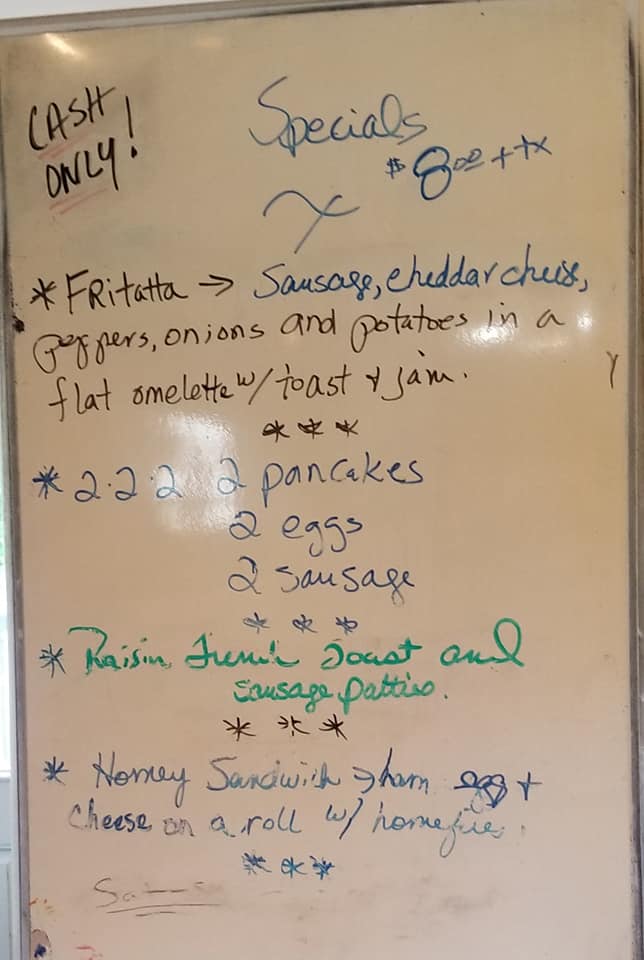 CASH
ONLY!
Specials
$8.00 + tx
* FRitatta → Sausage, cheddar chees,
peppers, onions and potatoes in a
flat omelette w/ toast & jam.
* * *
* 2·2·2 2 pancakes
2 eggs
2 sausage
* * *
* Raisin French Toast and
sausage patties.
* * *
* Homey Sandwich → ham egg +
cheese on a roll w/ homefrie.
* * *